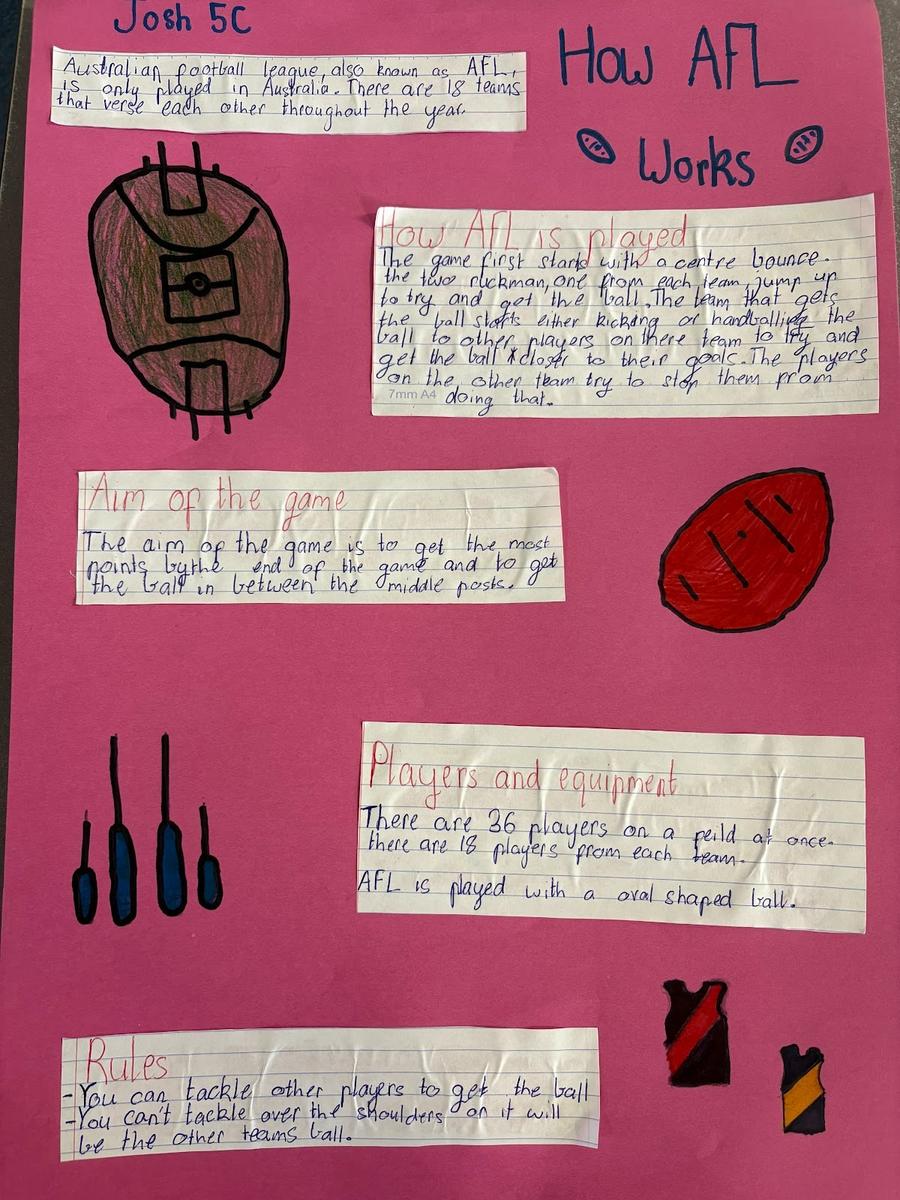 Josh 5C
How AFL
Works
Australian football league, also known as AFL,
is only played in Australia. There are 18 teams
that verse each other throughout the year.
How AFL is played
The game first starts with a centre bounce.
the two ruckman, one from each team, jump up
to try and get the ball. The team that gets
the ball starts either kicking or handballing the
ball to other players on there team to try and
get the ball closer to their goals. The players
on the other team try to stop them from
7mm A4 doing that.
Aim of the game
The aim of the game is to get the most
points by the end of the game and to get
the ball in between the middle posts.
Players and equipment
There are 36 players on a feild at once.
there are 18 players from each team.
AFL is played with a oval shaped ball.
Rules
-You can tackle other players to get the ball
-You can't tackle over the shoulders or it will
be the other teams ball.